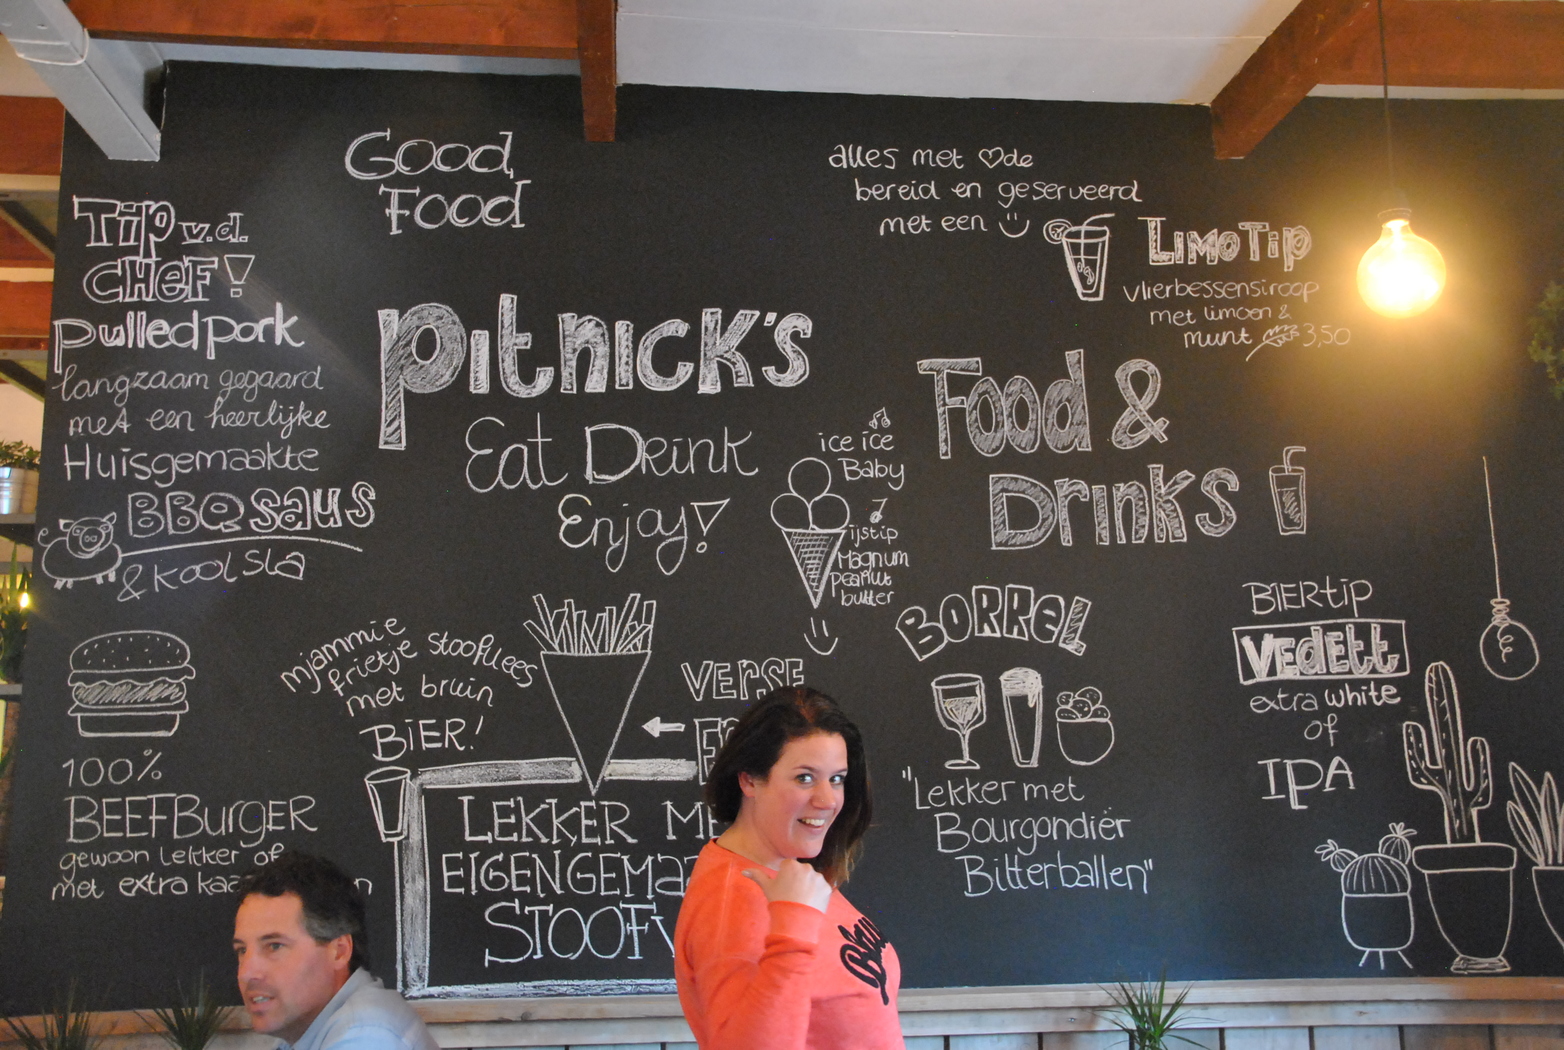 Good
Food
Tip v.d.
CHEF!
pulled pork
langzaam gegaard
met een heerlijke
Huisgemaakte
BBQ saus
& koolsla
100%
BEEFBurgER
gewoon lekker of
met extra
pitnick's
Eat Drink
Enjoy!
mjammie
frietje stoofvlees
met bruin
BiER!
VERSE
LEKKER
STOOF
ice ice
Baby
ijstip
Magnum
peanut
butter
alles met ♡ de
bereid en geserveerd
met een
LimoTip
vlierbessensiroop
met limoen &
munt 3,50
Food &
Drinks
BORREL
"Lekker met
Bourgondiër
Bitterballen"
BIERtip
VEdett
extra white
of
IPA